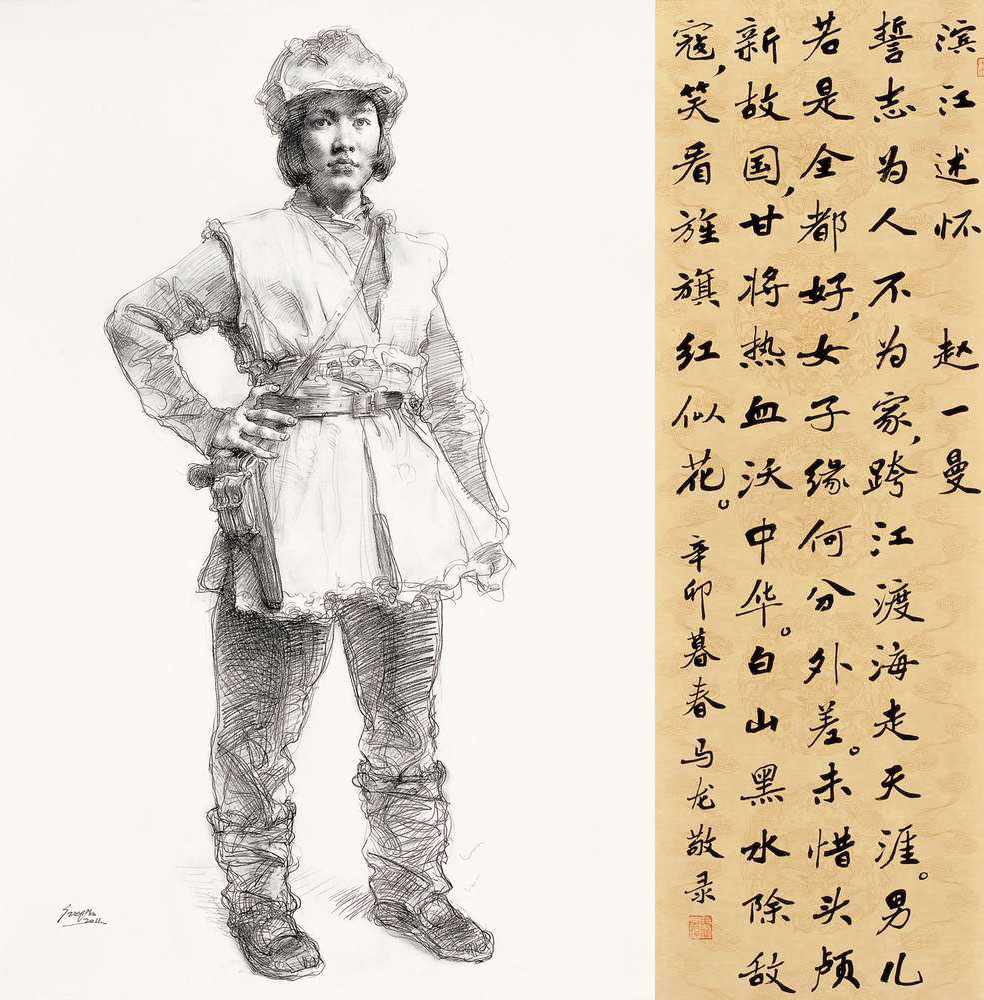 滨江述怀 赵一曼
誓志为人不为家,跨江渡海走天涯。男儿
若是全都好,女子缘何分外差。未惜头颅
新故国,甘将热血沃中华。白山黑水除敌
寇,笑看旌旗红似花。 辛卯暮春马龙敬录
2011